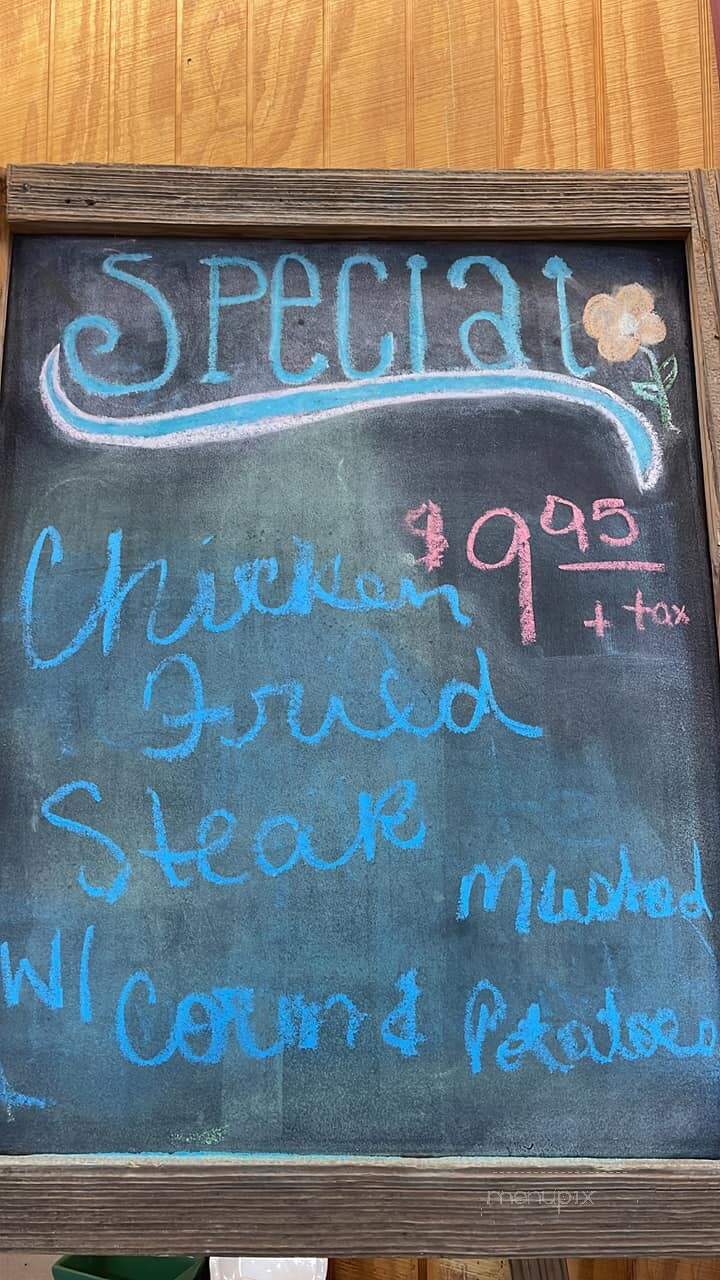 Special
$9.95
+ tax
Chicken
Fried
Steak
Mashed
W/ Corn & Potatoes
menupix